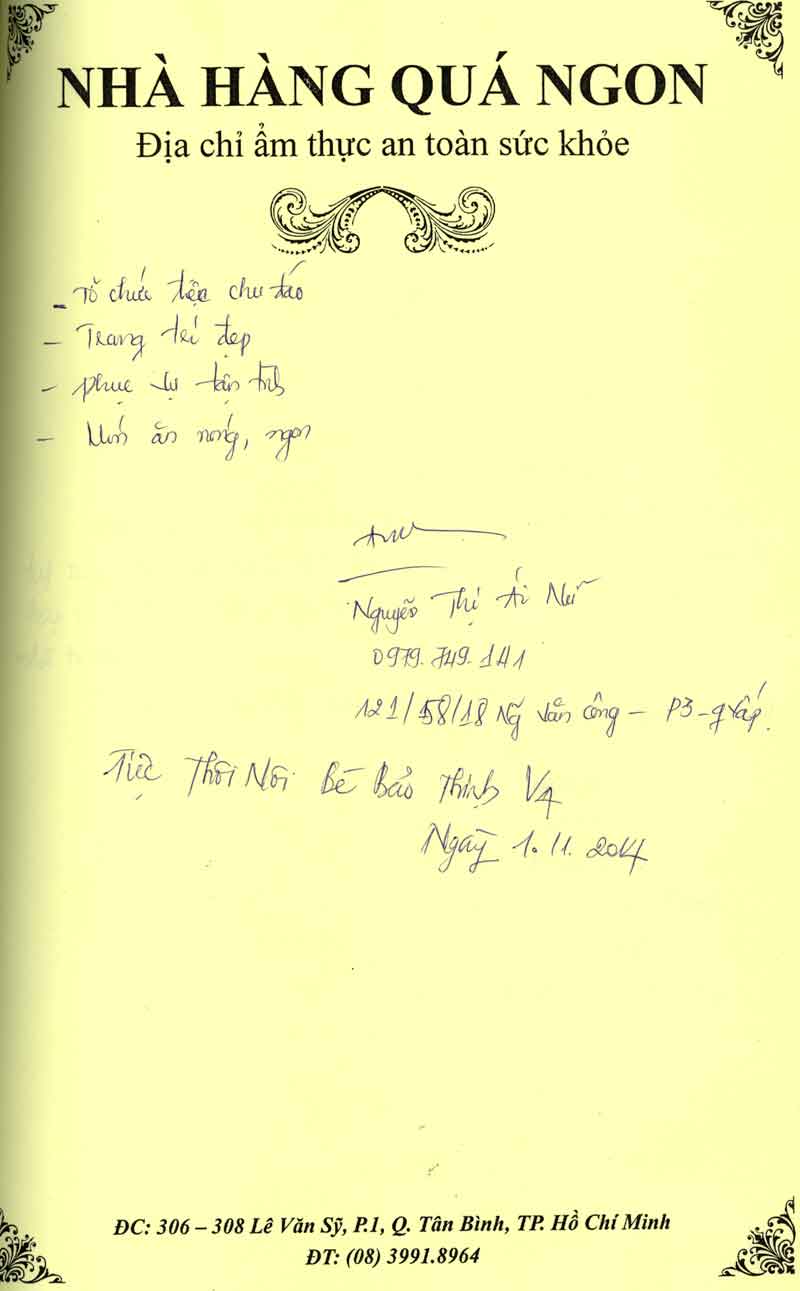 NHÀ HÀNG QUÁ NGON
Địa chỉ ẩm thực an toàn sức khỏe
- Tổ chức tiệc chu đáo
- Trang trí đẹp
- Phục vụ tận tình
- Món ăn nóng, ngon
Nguyễn Thị Ái Nữ
0979.749.141
121/58/18 Ng Văn Công - P3 - gvấp.
Tiệc Thôi Nôi Bé Bảo Thịnh
Ngày 1.11.2014
ĐC: 306 – 308 Lê Văn Sỹ, P.1, Q. Tân Bình, TP. Hồ Chí Minh
ĐT: (08) 3991.8964